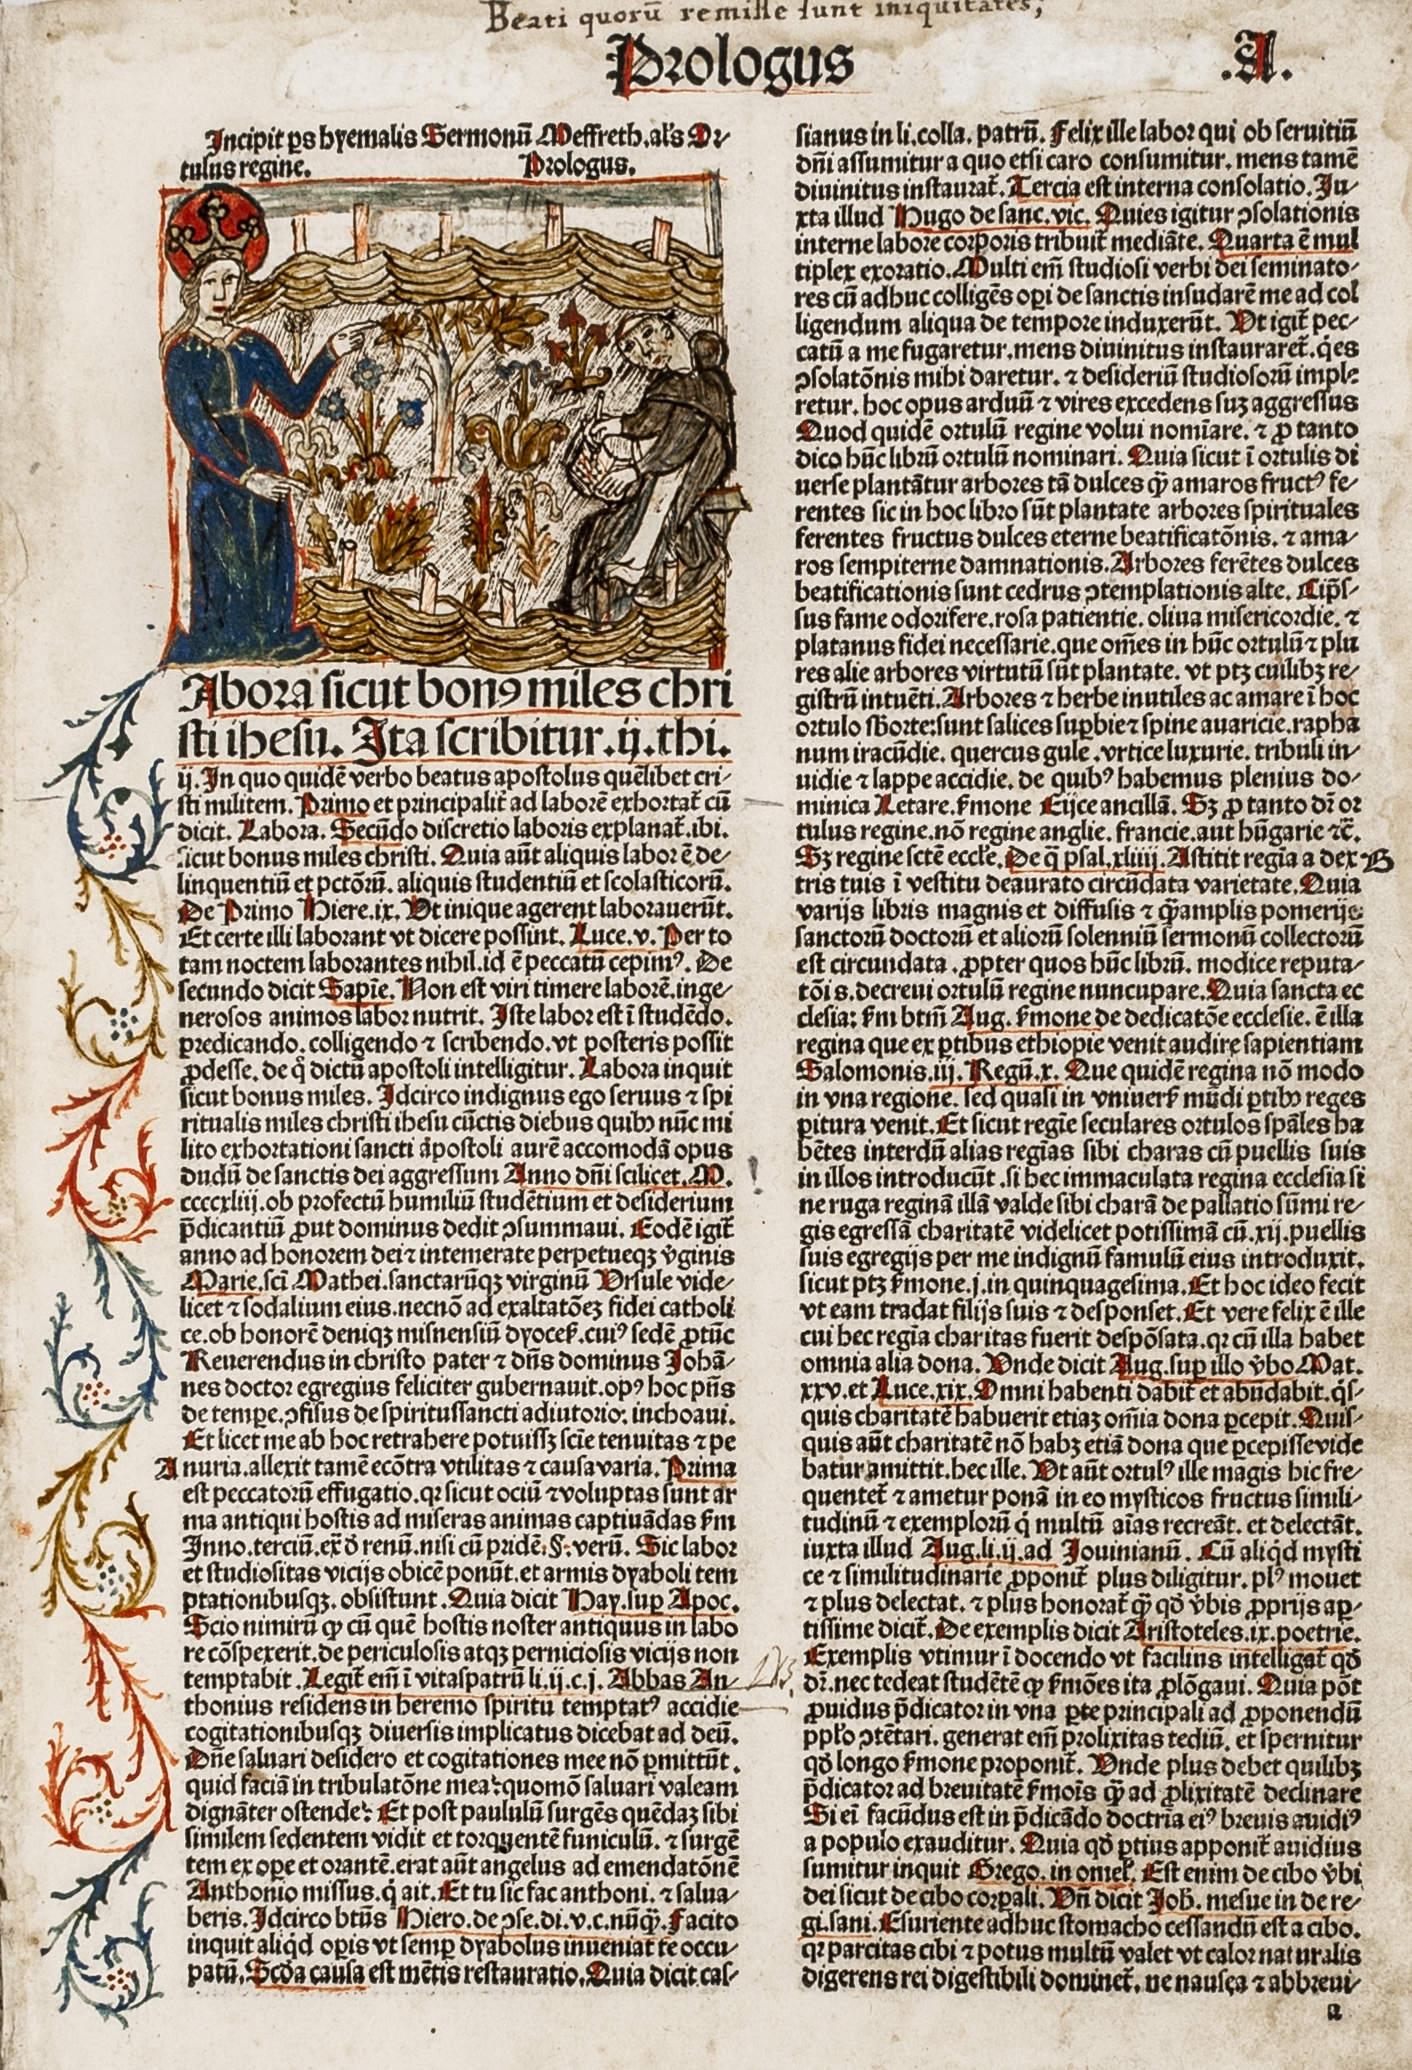 Beati quorū remisse sunt iniquitates;
Prologus
.A.
Incipit ꝑs hyemalis Sermonū Meffreth.al's Or-
tulus regine. Prologus.
Abora sicut bonꝰ miles chri
sti ihesu. Ita scribitur.ij.thi.
ij. In quo quidē verbo beatus apostolus quēlibet cri-
sti militem. Primo et principalit̄ ad laborē exhortat̄ cū
dicit. Labora. Secūdo discretio laboris explanat̄.ibi.
sicut bonus miles christi. Quia aūt aliquis labor ē de-
linquentiū et pctōrū. aliquis studentiū et scolasticorū.
De Primo Hiere.ix. Vt inique agerent laborauerūt.
Et certe illi laborant vt dicere possint. Luce.v. Per to
tam noctem laborantes nihil.id ē peccatū cepimꝰ. De
secundo dicit Sapīe. Non est viri timere laborē.inge-
nerosos animos labor nutrit. Iste labor est ī studēdo.
predicando. colligendo ⁊ scribendo.vt posteris possit
ꝓdesse. de q̄ dictū apostoli intelligitur. Labora inquit
sicut bonus miles. Idcirco indignus ego seruus ⁊ spi
ritualis miles christi ihesu cūctis diebus quibꝰ nūc mi
lito exhortationi sancti āpostoli aurē accomodā opus
dudū de sanctis dei aggressum Anno dn̄i scilicet. M.
ccccxliij.ob profectū humiliū studētium et desiderium
p̄dicantiū ꝓut dominus dedit ↄsummaui. Eodē igit̄
anno ad honorem dei ⁊ intemerate perpetueqꝫ v̄ginis
Marie.sci Mathei.sanctarūqꝫ virginū Vrsule vide-
licet ⁊ sodalium eius.necnō ad exaltatōeꝫ fidei catholi
ce.ob honorē deniqꝫ misnensiū dyoceẜ.cuiꝰ sedē ꝓtūc
Reuerendus in christo pater ⁊ dn̄s dominus Johā-
nes doctor egregius feliciter gubernauit.opꝰ hoc pn̄s
de tempe.ↄfisus de spiritussancti adiutorio: inchoaui.
Et licet me ab hoc retrahere potuissꝫ scīe tenuitas ⁊ pe
A nuria.allexit tamē ecōtra vtilitas ⁊ causa varia. Prima
est peccatorū effugatio.qꝛ sicut ociū ⁊ voluptas sunt ar
ma antiqui hostis ad miseras animas captiuādas ẜm
Inno.terciū.ex̄ d̄ renū.nisi cū pridē.§.verū. Sic labor
et studiositas vicijs obicē ponūt.et armis dyaboli tem
ptationibusqꝫ. obsistunt. Quia dicit Hay.suꝑ Apoc.
Scio nimirū ꝙ cū quē hostis noster antiquus in labo
re cōspexerit.de periculosis atqꝫ perniciosis vicijs non
temptabit. Legit̄ em̄ ī vitaspatrū li.ij.c.j. Abbas An-
thonius residens in heremo spiritu temptatꝰ accidie
cogitationibusqꝫ diuersis implicatus dicebat ad deū.
Dn̄e saluari desidero et cogitationes mee nō ꝑmittūt.
quid faciā in tribulatōne mea: quomō saluari valeam
dignāter ostende: Et post paululū surgēs quēdaꝫ sibi
similem sedentem vidit et torquentē funiculū. ⁊ surgē
tem ex oꝑe et orantē.erat aūt angelus ad emendatōnē
Anthonio missus.q̄ ait. Et tu sic fac anthoni. ⁊ salua-
beris. Idcirco btūs Hiero.de ↄse.di.v.c.nūq̄. Facito
inquit aliqd oꝑis vt semꝑ dyabolus inueniat te occu-
patū. Scd̄a causa est mētis restauratio. Quia dicit cas-
sianus in li.colla. patrū. Felix ille labor qui ob seruitiū
dn̄i assumitur a quo etsi caro consumitur. mens tamē
diuinitus instaurat̄. Tercia est interna consolatio. Ju-
xta illud Hugo de sanc.vic. Quies igitur ↄsolationis
interne labore corporis tribuit̄ mediāte. Quarta ē mul
tiplex exoratio. Multi em̄ studiosi verbi dei seminato-
res cū adhuc colligēs oꝑi de sanctis insudarē me ad col
ligendum aliqua de tempore induxerūt. Vt igit̄ pec-
catū a me fugaretur.mens diuinitus instauraret̄.q̄es
ↄsolatōnis mihi daretur. ⁊ desideriū studiosorū imple-
retur. hoc opus arduū ⁊ vires excedens suꝫ aggressus
Quod quidē ortulū regine volui nomīare. ⁊ ꝓ tanto
dico hūc librū ortulū nominari. Quia sicut ī ortulis di
uerse plantātur arbores tā dulces ꝙ̄ amaros fructꝰ fe-
rentes sic in hoc libro sūt plantate arbores spirituales
ferentes fructus dulces eterne beatificatōnis. ⁊ ama-
ros sempiterne damnationis. Arbores ferētes dulces
beatificationis sunt cedrus ↄtemplationis alte. Cip̄s-
sus fame odorifere.rosa patientie. oliua misericordie. ⁊
platanus fidei necessarie.que om̄es in hūc ortulū ⁊ plu
res alie arbores virtutū sūt plantate. vt ptꝫ cuilibꝫ re-
gistrū intuēti. Arbores ⁊ herbe inutiles ac amare ī hoc
ortulo sb̄orte: sunt salices suꝑbie ⁊ spine auaricie.rapha
num iracūdie. quercus gule .vrtice luxurie. tribuli in-
uidie ⁊ lappe accidie. de quibꝰ habemus plenius do-
minica Letare.ẜmone Eijce ancillā. Sꝫ ꝓ tanto dr̄ or
tulus regine.nō regine anglie. francie.aut hūgarie ⁊c̄.
Sꝫ regine sctē eccl'e. De q̄ psal.xliiij. Astitit regia a dex B
tris tuis ī vestitu deaurato circūdata varietate. Quia
varijs libris magnis et diffusis ⁊ ꝙ̄amplis pomerijs
sanctorū doctorū et aliorū solenniū sermonū collectorū
est circundata .ꝓpter quos hūc librū. modice reputa-
tōis.decreui ortulū regine nuncupare. Quia sancta ec
clesia: ẜm btm̄ Aug. ẜmone de dedicatōe ecclesie. ē illa
regina que ex ꝑtibus ethiopie venit audire sapientiam
Salomonis.iij. Regū.x. Que quidē regina nō modo
in vna regione. sed quasi in vniuerẜ mūdi ꝑtibꝰ reges
ꝑitura venit. Et sicut regīe seculares ortulos spāles ha
bētes interdū alias regīas sibi charas cū puellis suis
in illos introducūt .si hec immaculata regina ecclesia si
ne ruga reginā illā valde sibi charā de pallatio sūmi re-
gis egressā charitatē videlicet potissimā cū.xij.puellis
suis egregijs per me indignū famulū eius introduxit.
sicut ptꝫ ẜmone.j.in quinquagesima. Et hoc ideo fecit
vt eam tradat filijs suis ⁊ desponset. Et vere felix ē ille
cui hec regīa charitas fuerit despōsata.qꝛ cū illa habet
omnia alia dona. Vnde dicit Aug.suꝑ illo v̄bo Mat.
xxv.et Luce.xix. Omni habenti dabit̄ et abūdabit.q̄s-
quis charitatē habuerit etiaꝫ om̄ia dona ꝑcepit. Quis-
quis aūt charitatē nō habꝫ etiā dona que ꝑcepisse vide
batur amittit.hec ille. Vt aūt ortulꝰ ille magis hic fre-
quentet̄ ⁊ ametur ponā in eo mysticos fructus simili-
tudinū ⁊ exemplorū q̄ multū aīas recreāt. et delectāt.
iuxta illud Aug.li.ij.ad Jouinianū. Cū aliqd mysti
ce ⁊ similitudinarie ꝓponit̄ plus diligitur. plꝰ mouet
⁊ plus delectat. ⁊ plus honorat̄ ꝙ̄ qd̄ v̄bis ꝓprijs aꝑ-
tissime dicit̄. De exemplis dicit Aristoteles.ix.poetrie.
Exemplis vtimur ī docendo vt facilius intelligat̄ qd̄
dr̄.nec tedeat studētē ꝙ ẜmōes ita ꝓlōgaui. Quia pōt
ꝓuidus p̄dicator in vna ꝑte principali ad ꝓponendū
ppl'o ↄtētari. generat em̄ prolixitas tediū. et spernitur
qd̄ longo ẜmone proponit̄. Vnde plus debet quilibꝫ
p̄dicator ad breuitatē ẜmoīs ꝙ̄ ad ꝓlixitatē declinare
Si ei facūdus est in p̄dicādo doctrīa eiꝰ breuis auidiꝰ
a populo exauditur. Quia qd̄ ꝑtius apponit̄ auidius
sumitur inquit Grego.in omel'. Est enim de cibo v̄bi
dei sicut de cibo corꝑali. Vn̄ dicit Joh̄. mesue in de re-
gi.sani. Esuriente adhuc stomacho cessandū est a cibo.
qꝛ parcitas cibi ⁊ potus multū valet vt calor naturalis
digerens rei digestibili dominet̄. ne nausea ⁊ abbreui-
a